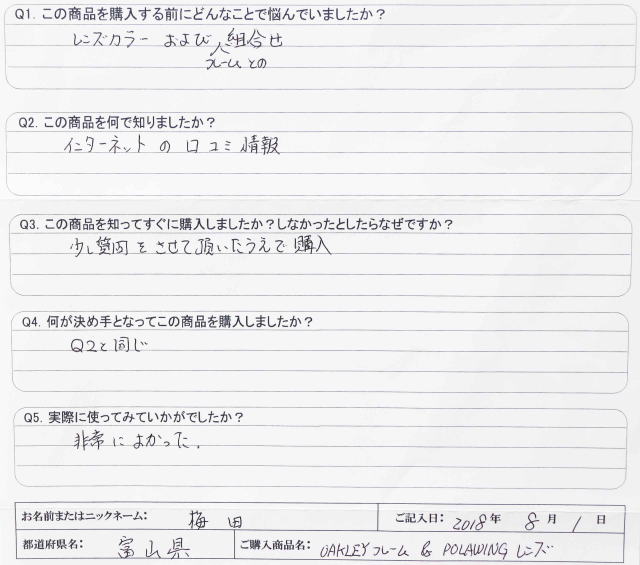 Q1. この商品を購入する前にどんなことで悩んでいましたか？
レンズカラー および 組合せ
フレームとの
Q2. この商品を何で知りましたか？
インターネットの口コミ情報
Q3. この商品を知ってすぐに購入しましたか？しなかったとしたらなぜですか？
少し質問をさせて頂いたうえで購入
Q4. 何が決め手となってこの商品を購入しましたか？
Q2と同じ
Q5. 実際に使ってみていかがでしたか？
非常によかった.
お名前またはニックネーム： 梅田 ご記入日： 2018年 8月 1日
都道府県名： 富山県 ご購入商品名： OAKLEYフレーム & POLAWINGレンズ